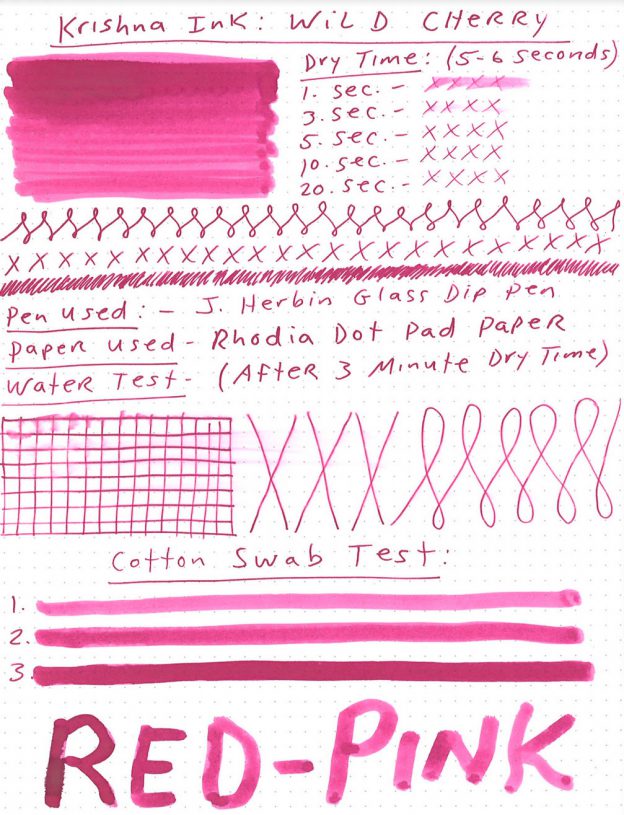 Krishna Ink: Wild Cherry
Dry Time: (5-6 seconds)
1. sec. - x x x x
3. sec. - x x x x
5. sec. - x x x x
10. sec. - x x x x
20. sec. - x x x x
x x x x x x x x x x x x x x x x x x x x x x x x x x
Pen Used: - J. Herbin Glass Dip Pen
Paper Used - Rhodia Dot Pad Paper
Water Test - (After 3 Minute Dry Time)
Cotton Swab Test:
1.
2.
3.
RED-PINK